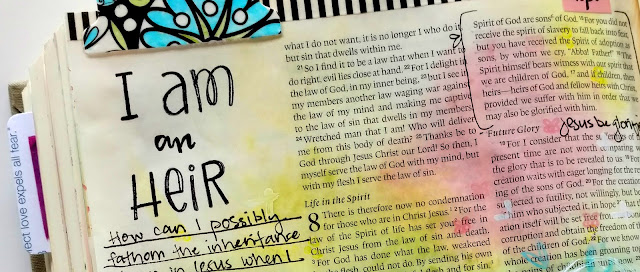 I am
an
HEiR
How can I possibly
fathom the inheritance
in Jesus when I
ect love expels all fear."
what I do not want, it is no longer I who do it,
but sin that dwells within me.
21 So I find it to be a law that when I want to
do right, evil lies close at hand. 22 For I delight in
the law of God, in my inner being, 23 but I see in
my members another law waging war against
the law of my mind and making me captive
to the law of sin that dwells in my members.
24 Wretched man that I am! Who will deliver
me from this body of death? 25 Thanks be to
God through Jesus Christ our Lord! So then, I
myself serve the law of God with my mind, but
with my flesh I serve the law of sin.
Life in the Spirit
8 There is therefore now no condemnation
for those who are in Christ Jesus. 2 For the
law of the Spirit of life has set you free in
Christ Jesus from the law of sin and death.
3 For God has done what the law, weakened
the flesh, could not do. By sending his own
Spirit of God are sons of God. 15 For you did not
receive the spirit of slavery to fall back into fear,
but you have received the Spirit of adoption as
sons, by whom we cry, "Abba! Father!" 16 The
Spirit himself bears witness with our spirit that
we are children of God, 17 and if children, then
heirs—heirs of God and fellow heirs with Christ,
provided we suffer with him in order that we
may also be glorified with him.
Jesus be glorified
Future Glory
18 For I consider that the sufferings of
present time are not worth comparing
the glory that is to be revealed to us.
creation waits with eager longing for the
ing of the sons of God. 20 For the creation
subjected to futility, not willingly, but
him who subjected it, in hope
ation itself will be set free
corruption and obtain the freedom of
the children of God. 22 For we know
whole creation has been groaning